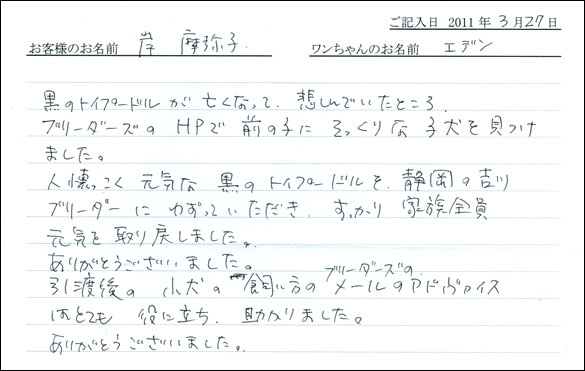 ご記入日 2011年3月27日
お客様のお名前 岸 摩弥子. ワンちゃんのお名前 エデン
黒のトイプードルが亡くなって、悲しんでいたところ、
ブリーダーズのHPで前の子にそっくりな子犬を見つけ
ました。
人懐っこく元気な黒のトイプードルを、静岡の吉川
ブリーダーにゆずっていただき、すっかり家族全員
元気を取り戻しました。
ありがとうございました。
ブリーダーズの
引渡後の小犬の飼い方のメールのアドヴァイス
はとても役に立ち、助かりました。
ありがとうございました。